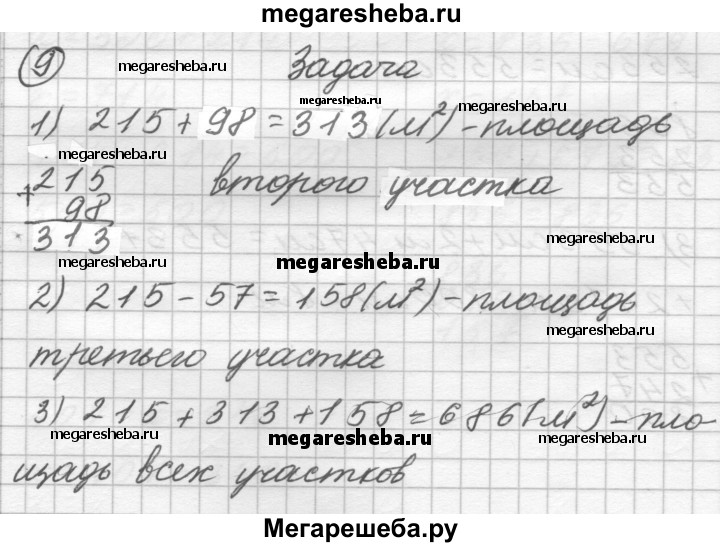 megaresheba.ru
9 Задача
megaresheba.ru
megaresheba.ru
megaresheba.ru
1) 215 + 98 = 313 (м²) - площадь
megaresheba.ru
второго участка
+ 215
98
313
megaresheba.ru
megaresheba.ru
2) 215 - 57 = 158 (м²) - площадь
megaresheba.ru
третьего участка
megaresheba.ru
3) 215 + 313 + 158 = 686 (м²) - пло
megaresheba.ru
megaresheba.ru
megaresheba.ru
щадь всех участков
Мегарешеба.ру